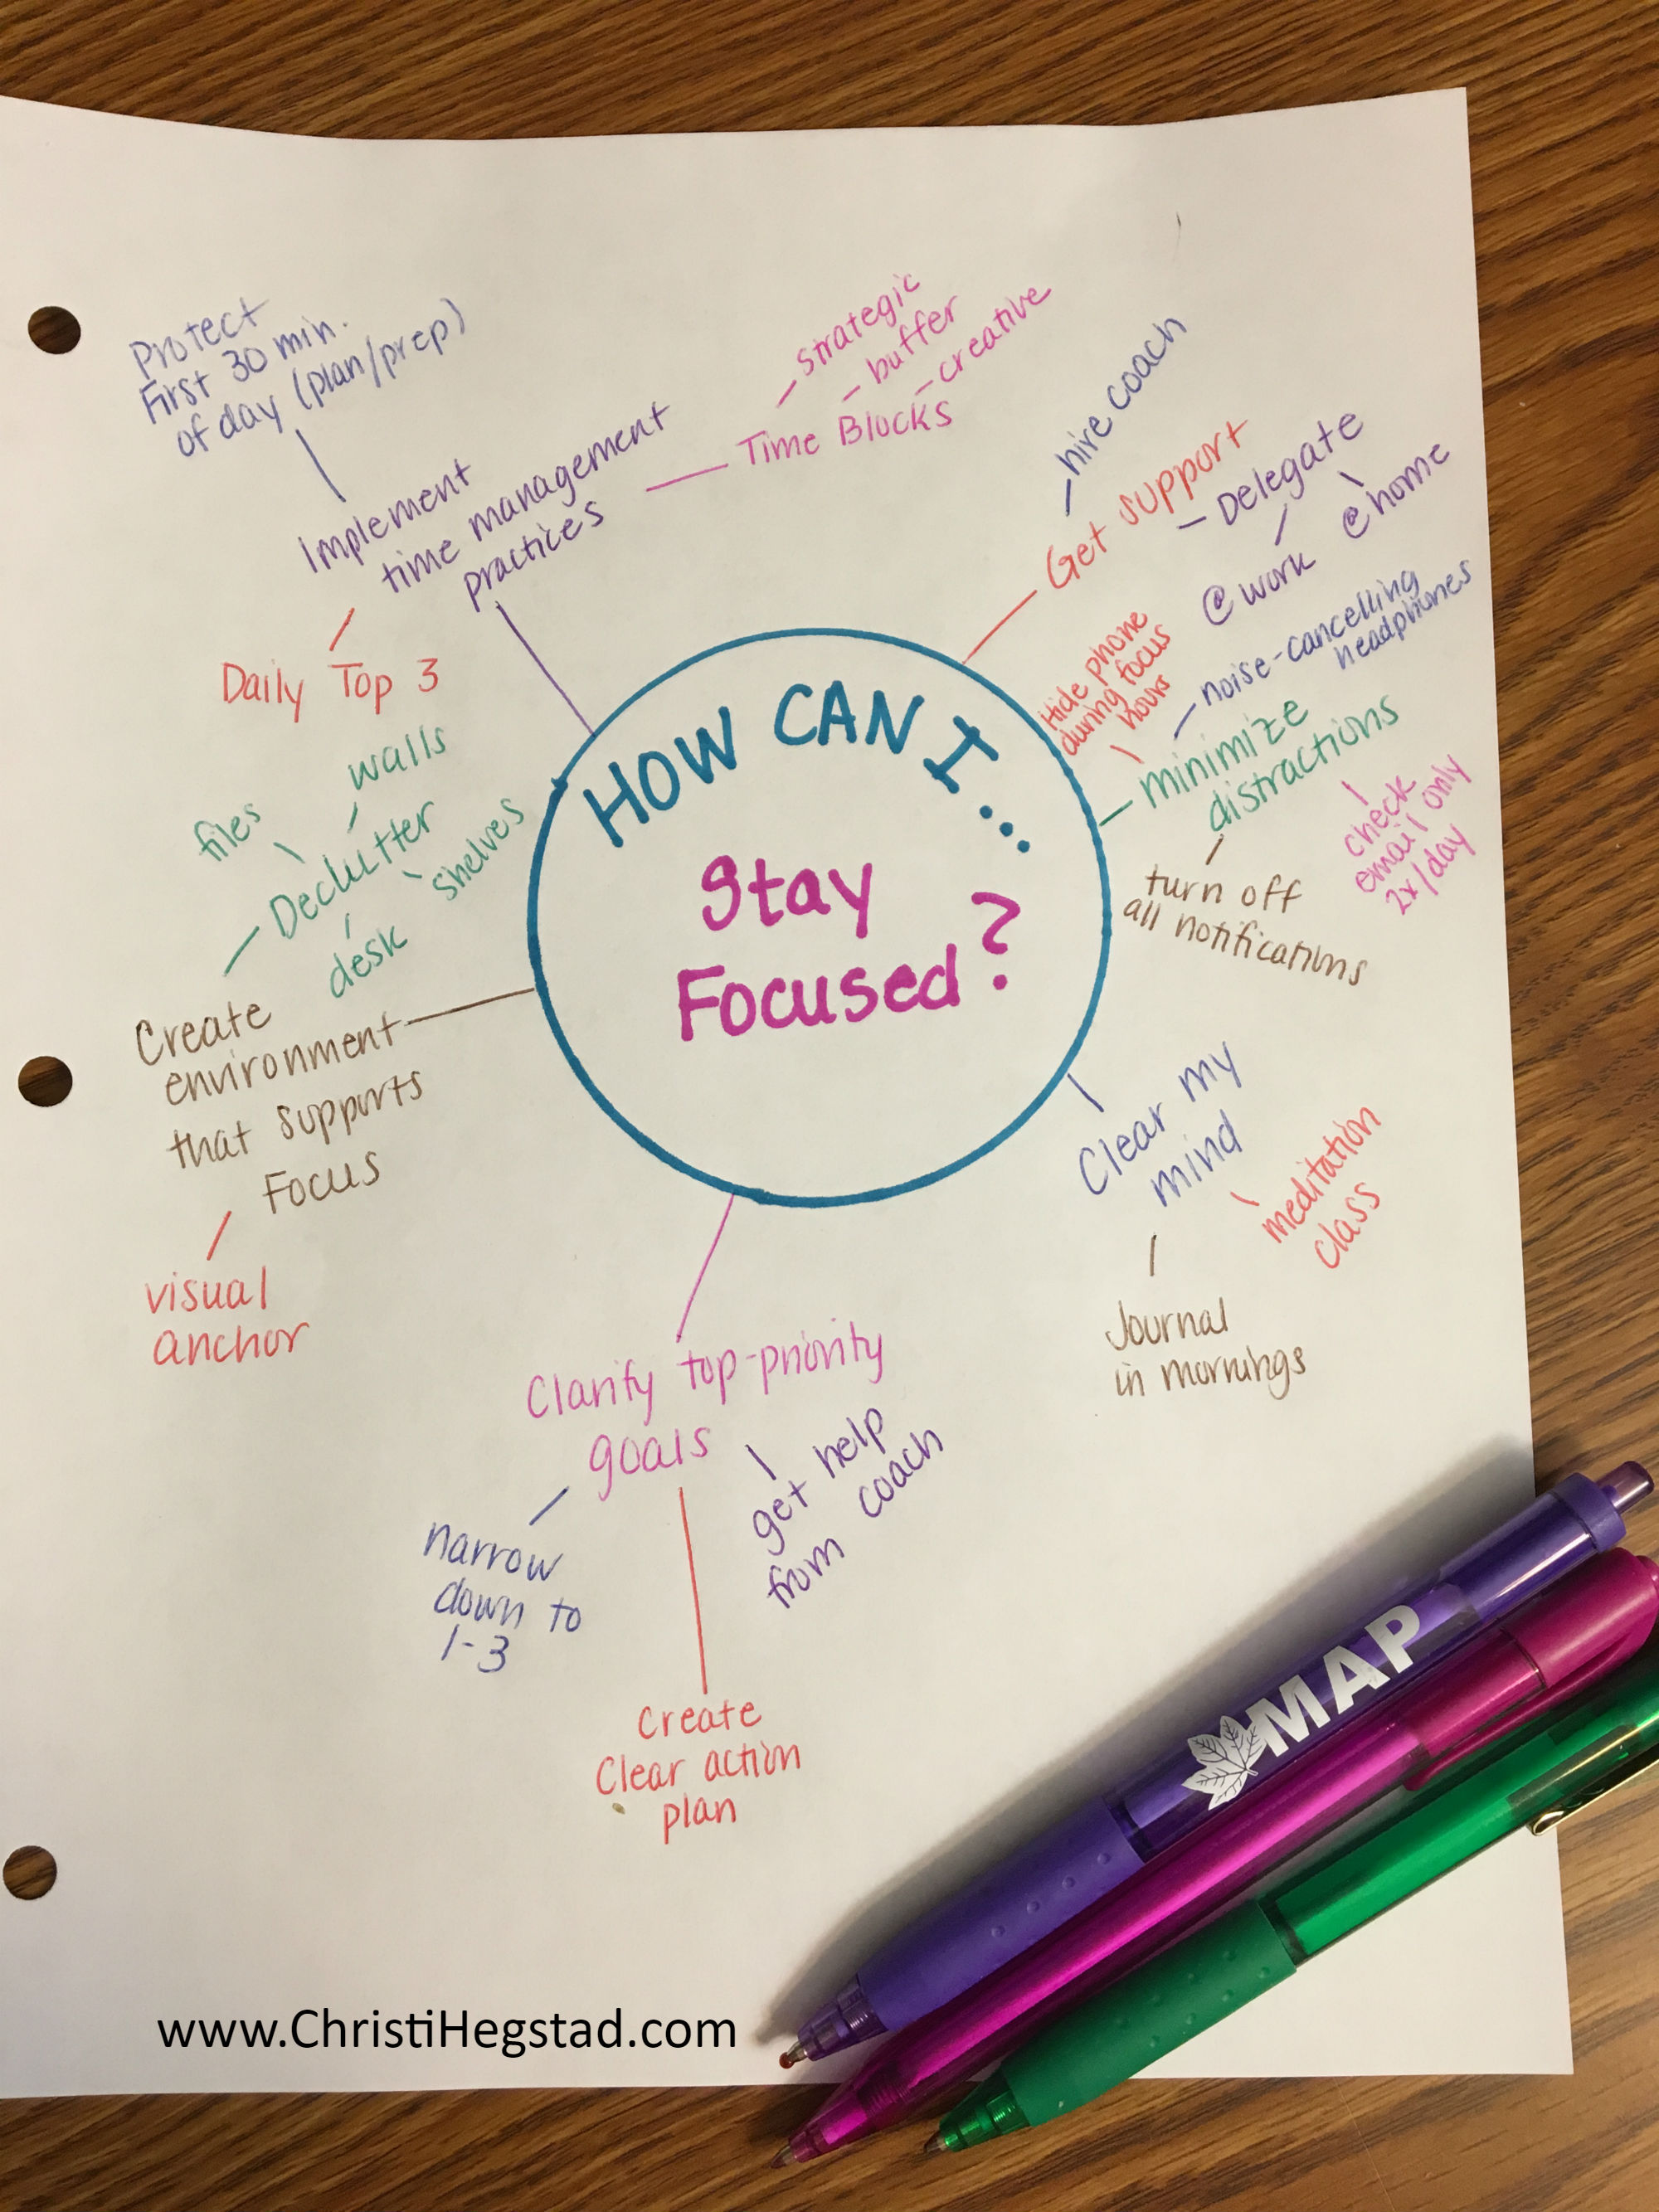 HOW CAN I...
Stay
Focused?
Protect
First 30 min.
of day (plan/prep)
Implement
time management
practices
Daily Top 3
Time Blocks
strategic
buffer
creative
Get support
hire coach
Delegate
@work
@home
minimize
distractions
Hide phone
during focus
hours
noise-cancelling
headphones
check
email only
2x/day
turn off
all notifications
Clear my
mind
meditation
class
Journal
in mornings
Clarify top-priority
goals
get help
from coach
Create
Clear action
plan
narrow
down to
1-3
Create
environment
that supports
Focus
visual
anchor
Declutter
files
walls
shelves
desk
MAP
www.ChristiHegstad.com